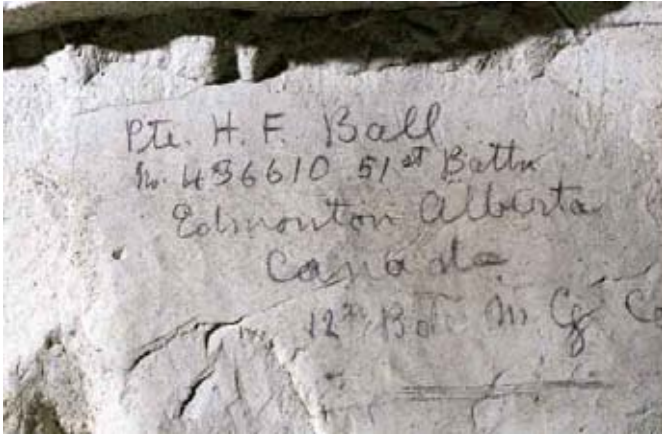 Pte. H. F. Ball
No. 436610 51st Battn
Edmonton Alberta
Canada
12th Bat. M. G. Co